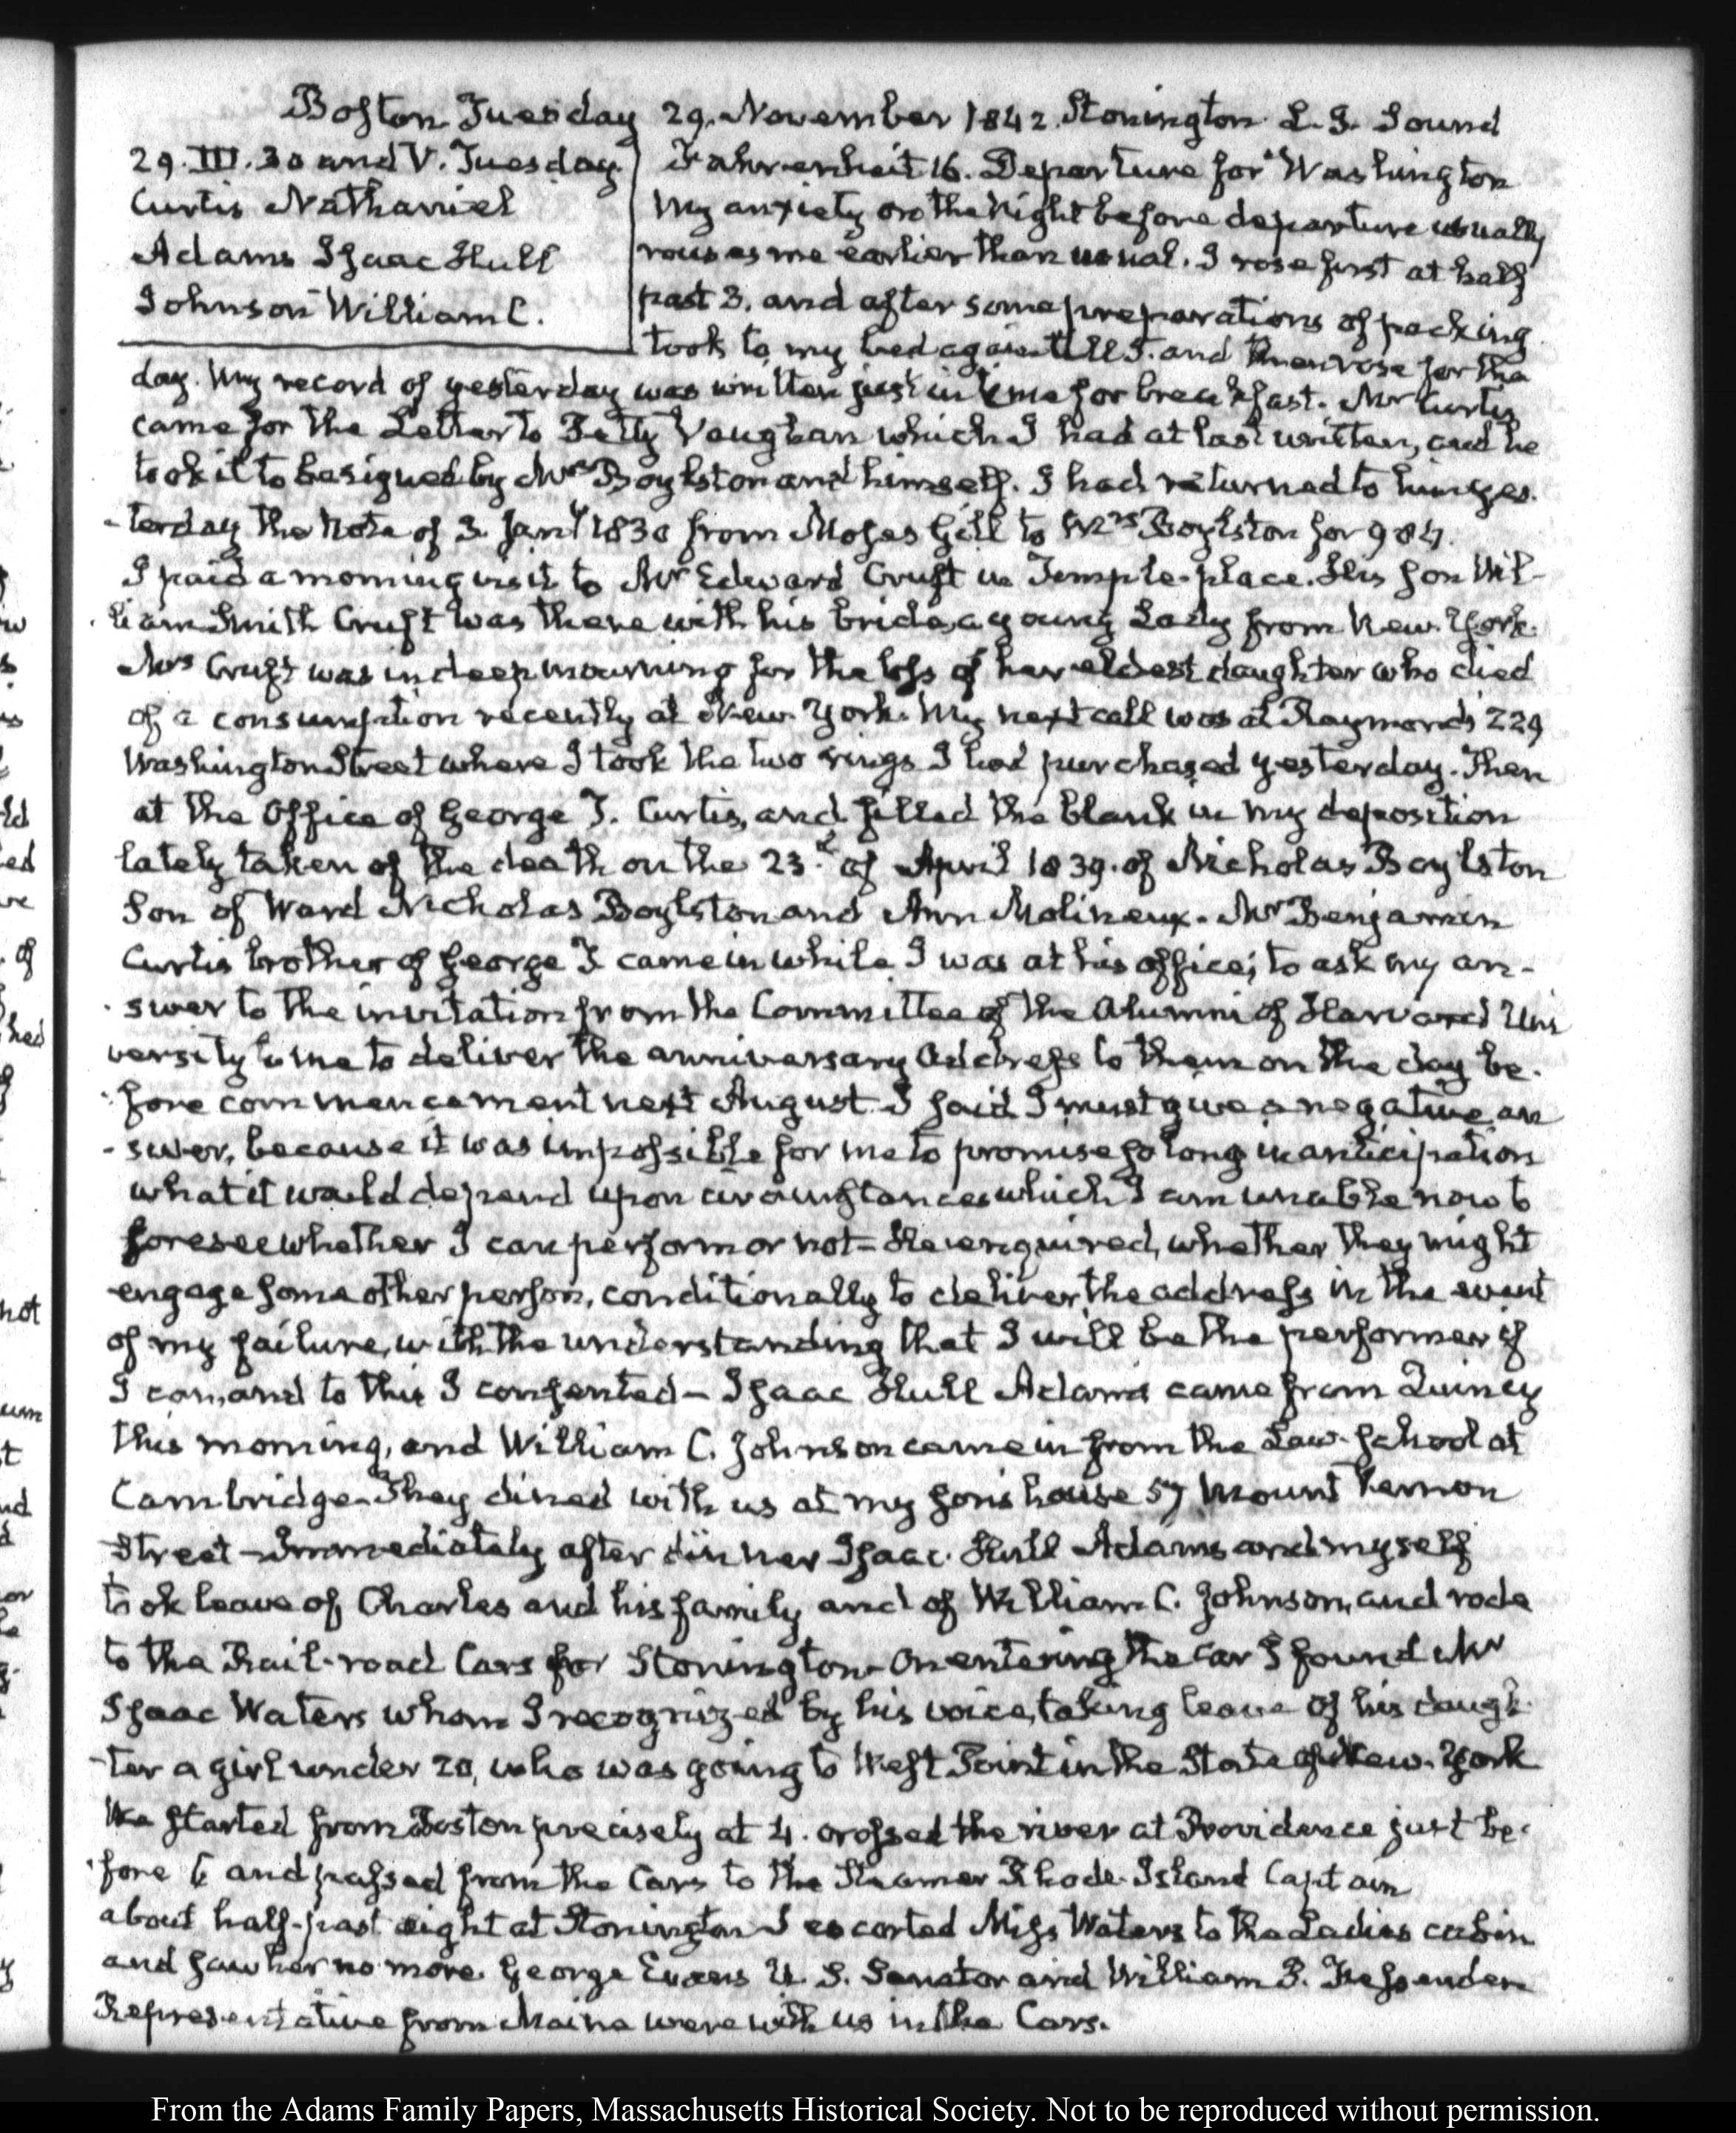 Boston Tuesday 29. November 1842. Stonington L. I. Sound
29. III. 30 and V. Tuesday.
Curtis Nathaniel
Adams Isaac Hull
Johnson William C.
Fahrenheit 16. Departure for Washington
My anxiety on the Night before departure usually
rouses me earlier than usual. I rose first at half
past 3. and after some preparations of packing
took to my bed again till 5. and then rose for the
day. My record of yesterday was written just in time for breakfast. Mr Curtis
came for the Letter to Petty Vaughan which I had at last written, and he
took it to be signed by Mrs Boylston and himself. I had returned to him yes-
-terday the Note of 3 Jany 1830 from Moses Gill to Mrs Boylston for 984.
I paid a morning visit to Mr Edward Cruft in Temple-place. His son Wil-
liam Smith Cruft was there with his bride, a young Lady from New-York.
Mrs Cruft was in deep mourning for the loss of her eldest daughter who died
of a consumption recently at New-York. My next call was at Raymond's 229
Washington Street where I took the two rings I had purchased yesterday. Then
at the Office of George T. Curtis, and filled the blank in my deposition
lately taken of the death on the 23.d of April 1839. of Nicholas Boylston
Son of Ward Nicholas Boylston and Ann Molineux. Mr Benjamin
Curtis brother of George T. came in while I was at his office; to ask my an-
swer to the invitation from the Committee of the Alumni of Harvard Uni
versity to me to deliver the anniversary Address to them on the day be-
fore commencement next August. I said I must give a negative an
-swer, because it was impossible for me to promise so long in anticipation
what it would depend upon circumstances which I am unable now to
foresee whether I can perform or not – He enquired, whether they might
engage some other person, conditionally to deliver the address in the event
of my failure, with the understanding that I will be the performer if
I can, and to this I consented – Isaac Hull Adams came from Quincy
this morning, and William C. Johnson came in from the Law-school at
Cambridge. They dined with us at my son's house 57 Mount Vernon
Street – Immediately after dinner Isaac Hull Adams and myself
took leave of Charles and his family and of William C. Johnson, and rode
to the Rail-road Cars for Stonington – On entering the Car I found Mr
Isaac Waters whom I recognized by his voice, taking leave of his daugh-
-ter a girl under 20, who was going to West Point in the State of New-York
We started from Boston precisely at 4. crossed the river at Providence just be-
fore 6 and passed from the Cars to the Steamer Rhode-Island Captain
about half-past eight at Stonington I escorted Miss Waters to the Ladies cabin
and saw her no more. George Evans U. S. Senator and William P. Fessenden
Representative from Maine were with us in the Cars.
From the Adams Family Papers, Massachusetts Historical Society. Not to be reproduced without permission.